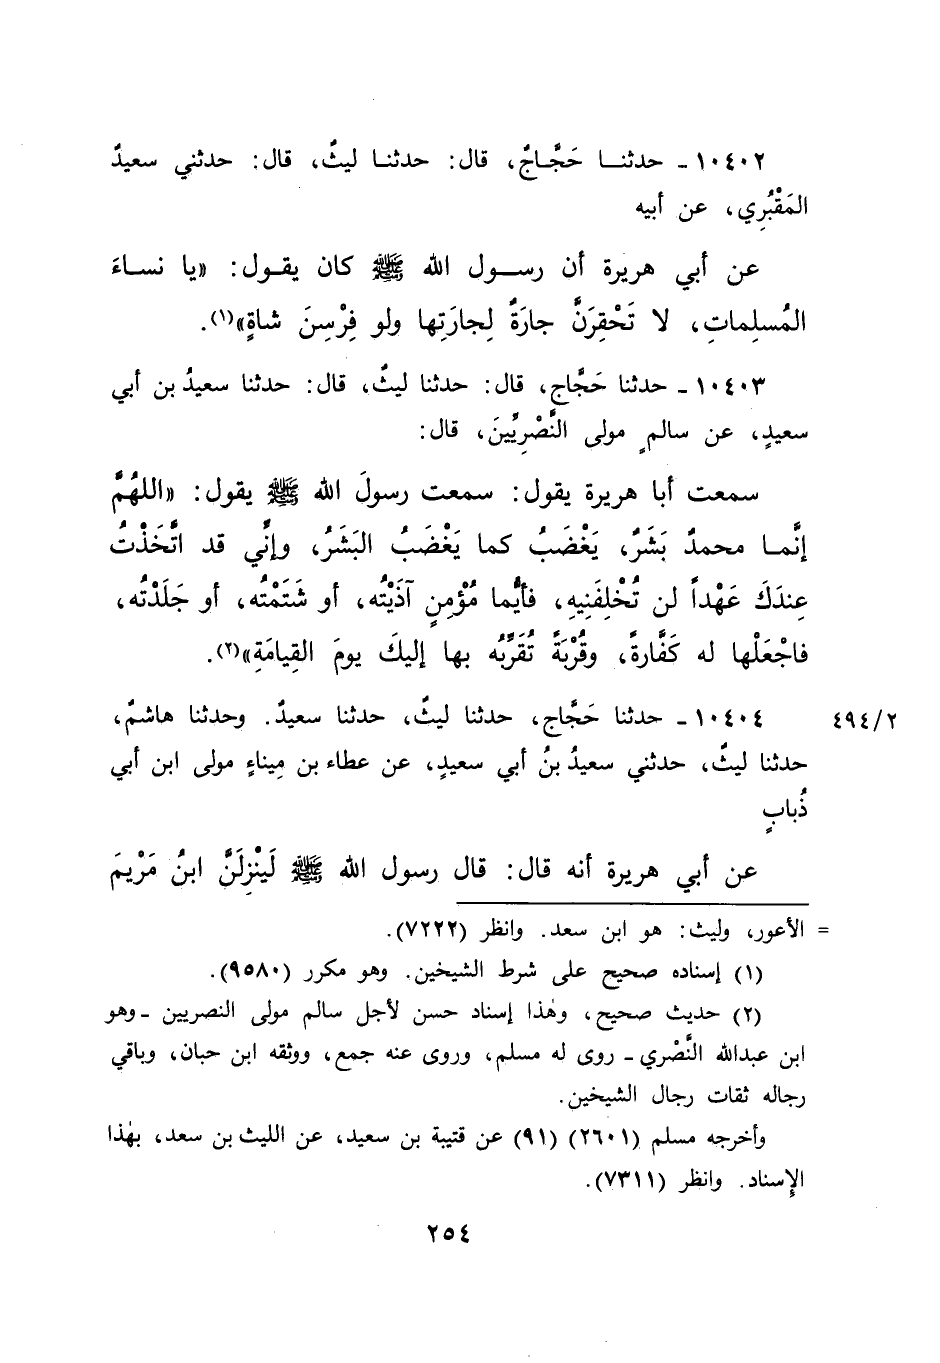 ١٠٤٠٢ - حدثنـا حَجَّـاجٌ، قال: حدثنـا ليثٌ، قال: حدثني سعيدٌ
المَقْبُرِي، عن أبيه
عن أبي هريرة أن رسـول الله ﷺ كان يقـول: «يا نسـاءَ
المُسلِماتِ، لا تَحْقِرَنَّ جارَةٌ لِجارَتِها ولو فِرْسِنَ شاةٍ»(١).
١٠٤٠٣ - حدثنا حَجَّاج، قال: حدثنا ليثٌ، قال: حدثنا سعيدُ بن أبي
سعيدٍ، عن سالمٍ مولى النَّصْرِيِّينَ، قال:
سمعت أبا هريرة يقول: سمعت رسولَ الله ﷺ يقول: «اللهُمَّ
إنَّمـا محمدٌ بَشَرٌ، يَغْضَبُ كما يَغْضَبُ البَشَرُ، وإنِّي قد اتَّخَذْتُ
عِندَكَ عَهْداً لن تُخْلِفَنِيهِ، فأيُّما مُؤْمِنٍ آذَيْتُه، أو شَتَمْتُه، أو جَلَدْتُه،
فاجْعَلْها له كَفَّارةً، وقُرْبَةً تُقَرِّبُه بها إليكَ يومَ القِيامَةِ»(٢).
١٠٤٠٤ - حدثنا حَجَّاج، حدثنا ليثٌ، حدثنا سعيدٌ. وحدثنا هاشمٌ، ٤٩٤/٢
حدثنا ليثٌ، حدثني سعيدُ بنُ أبي سعيدٍ، عن عطاء بن مِيناءٍ مولى ابن أبي
ذُبابٍ
عن أبي هريرة أنه قال: قال رسول الله ﷺ لَيَنْزِلَنَّ ابنُ مَرْيمَ
= الأعور، وليث: هو ابن سعد. وانظر (٧٢٢٢).
(١) إسناده صحيح على شرط الشيخين. وهو مكرر (٩٥٨٠).
(٢) حديث صحيح، وهٰذا إسناد حسن لأجل سالم مولى النصريين - وهو
ابن عبدالله النَّصْري - روى له مسلم، وروى عنه جمع، ووثقه ابن حبان، وباقي
رجاله ثقات رجال الشيخين.
وأخرجه مسلم (٢٦٠١) (٩١) عن قتيبة بن سعيد، عن الليث بن سعد، بهٰذا
الإِسناد. وانظر (٧٣١١).
٢٥٤